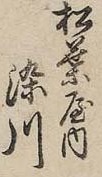 松葉屋内
染川